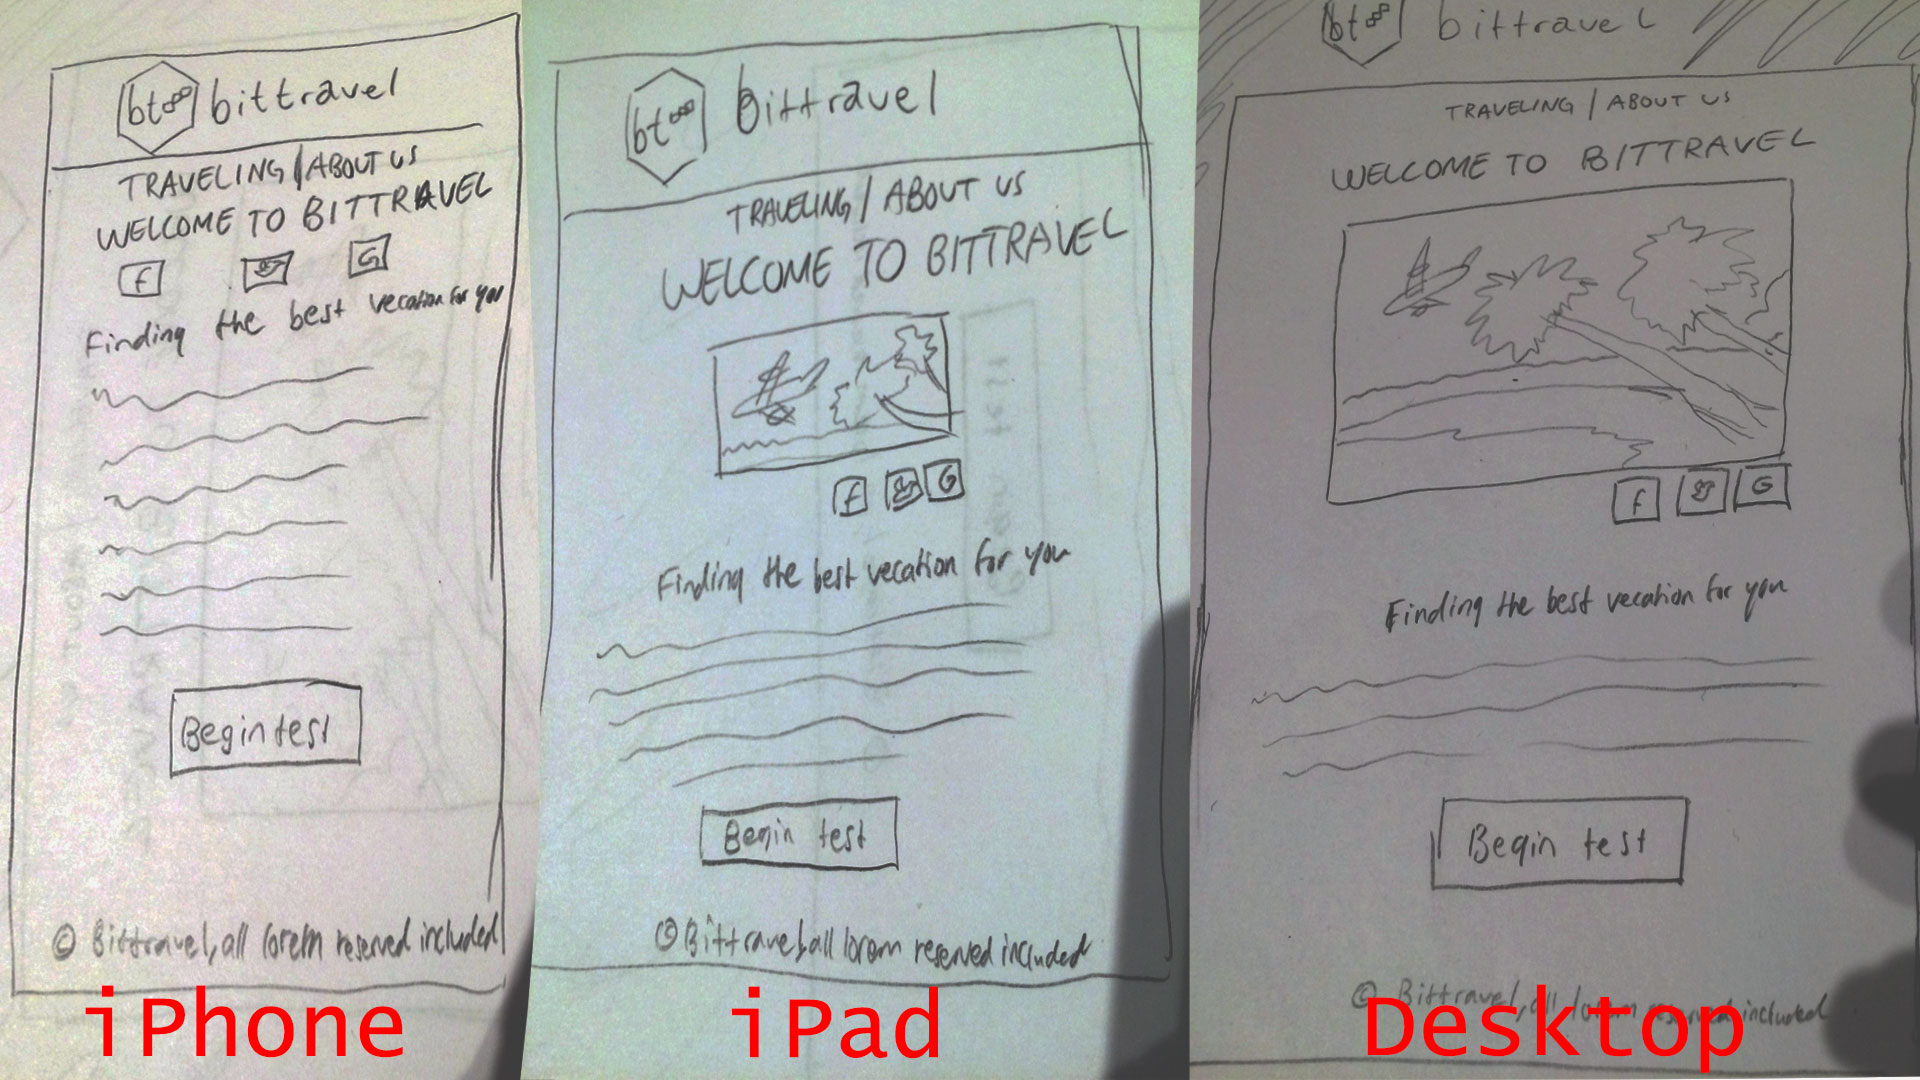 bt∞ bittravel
TRAVELING / ABOUT US
WELCOME TO BITTRAVEL
f G
Finding the best vecation for you
Begin test
© Bittravel, all lorem reserved included
iPhone
bt∞ Bittravel
TRAVELING / ABOUT US
WELCOME TO BITTRAVEL
f G
Finding the best vecation for you
Begin test
© Bittravel, all lorem reserved included
iPad
bt∞ bittravel
TRAVELING / ABOUT US
WELCOME TO BITTRAVEL
f G
Finding the best vecation for you
Begin test
© Bittravel, all lorem reserved included
Desktop